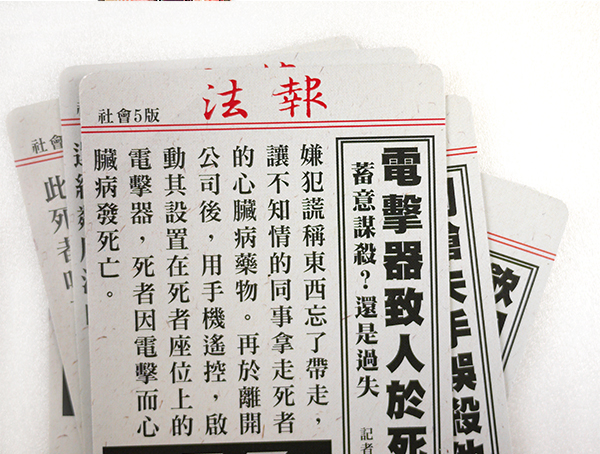 法報
社會5版
電擊器致人於死
蓄意謀殺？還是過失
記者
嫌犯謊稱東西忘了帶走，
讓不知情的同事拿走死者
的心臟病藥物。再於離開
公司後，用手機遙控，啟
動其設置在死者座位上的
電擊器，死者因電擊而心
臟病發死亡。
社會
此死者